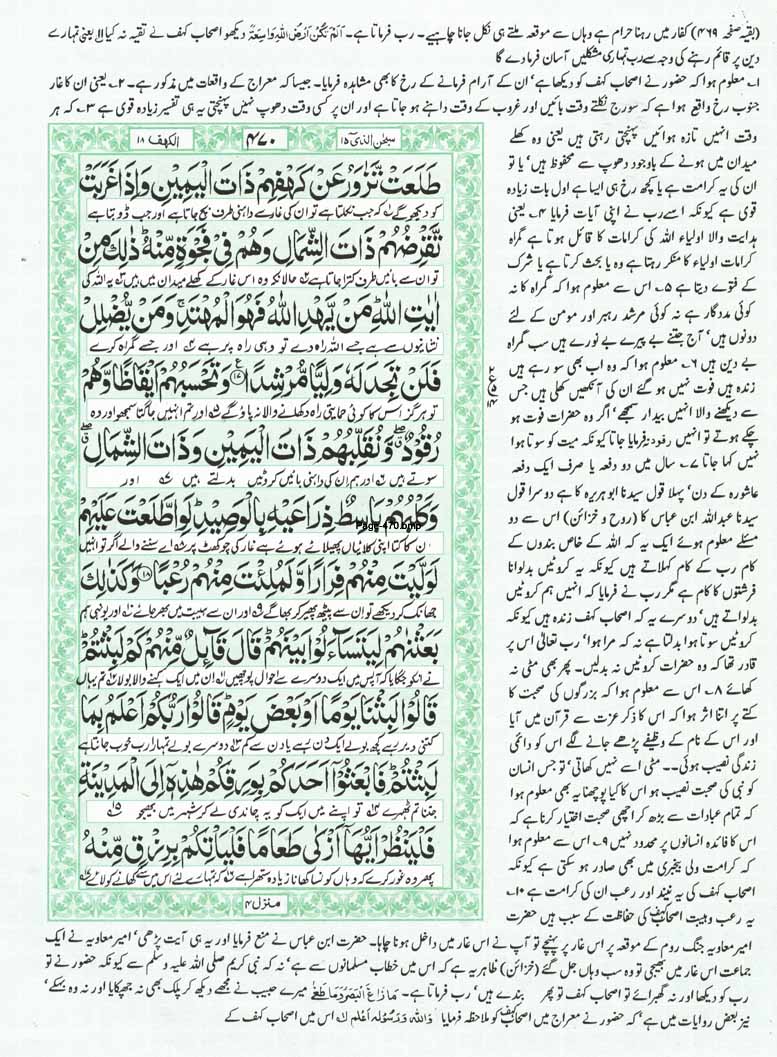 (بقیہ صفحہ ۴۶۹) کفار میں رہنا حرام ہے وہاں سے موقعہ ملتے ہی نکل جانا چاہیے۔ رب فرماتا ہے۔ اَلَمْ تَكُنْ اَرْضُ اللهِ وَاسِعَةً دیکھو اصحاب کہف نے تقیہ نہ کیا یعنی تمہارے
دین پر قائم رہنے کی وجہ سے رب تمہاری مشکلیں آسان فرما دے گا
۱۔ معلوم ہوا کہ حضور نے اصحاب کہف کو دیکھا ہے' ان کے آرام فرمانے کے رخ کا بھی مشاہدہ فرمایا۔ جیسا کہ معراج کے واقعات میں مذکور ہے۔ ۲۔ یعنی ان کا غار
جنوب رخ واقع ہوا ہے کہ سورج نکلتے وقت بائیں اور غروب کے وقت داہنے ہو جاتا ہے اور ان پر کسی وقت دھوپ نہیں پہنچتی یہ ہی تفسیر زیادہ قوی ہے ۳۔ کہ ہر
سبحن الذی ۱۵
۴۷۰
الکہف ۱۸
طَلَعَتْ تَّزٰوَرُ عَنْ كَهْفِهِمْ ذَاتَ الْيَمِيْنِ وَاِذَا غَرَبَتْ
کو دیکھو گے کہ جب نکلتا ہے تو ان کی غار سے داہنی طرف بچ جاتا ہے اور جب ڈوبتا ہے
تَّقْرِضُهُمْ ذَاتَ الشِّمَالِ وَهُمْ فِيْ فَجْوَةٍ مِّنْهُ ذٰلِكَ مِنْ
تو ان سے بائیں طرف کترا جاتا ہے حالانکہ وہ اس غار کے کھلے میدان میں ہیں یہ اللہ کی
اٰيٰتِ اللّٰهِ مَنْ يَّهْدِ اللّٰهُ فَهُوَ الْمُهْتَدِ وَمَنْ يُّضْلِلْ
نشانیوں سے ہے جسے اللہ راہ دے تو وہی راہ پر ہے اور جسے گمراہ کرے
فَلَنْ تَجِدَ لَهٗ وَلِيًّا مُّرْشِدًا وَتَحْسَبُهُمْ اَيْقَاظًا وَّهُمْ
تو ہرگز اس کا کوئی حمایتی راہ دکھلانے والا نہ پاؤ گے اور تم انہیں جاگتا سمجھو اور وہ
رُقُوْدٌ وَّنُقَلِّبُهُمْ ذَاتَ الْيَمِيْنِ وَذَاتَ الشِّمَالِ
سوتے ہیں اور ہم ان کی داہنی بائیں کروٹیں بدلتے ہیں اور
وَكَلْبُهُمْ بَاسِطٌ ذِرَاعَيْهِ بِالْوَصِيْدِ لَوِ اطَّلَعْتَ عَلَيْهِمْ
Page-470.bmp
ان کا کتا اپنی کلائیاں پھیلائے ہوئے ہے غار کی چوکھٹ پر اے سننے والے اگر تو انہیں
لَوَلَّيْتَ مِنْهُمْ فِرَارًا وَّلَمُلِئْتَ مِنْهُمْ رُعْبًا ۱۸ وَكَذٰلِكَ
جھانک کر دیکھے تو ان سے پیٹھ پھیر کر بھاگے اور ان سے ہیبت میں بھر جائے اور یونہی ہم
بَعَثْنٰهُمْ لِيَتَسَآءَلُوْا بَيْنَهُمْ قَالَ قَآئِلٌ مِّنْهُمْ كَمْ لَبِثْتُمْ
نے انکو جگایا کہ آپس میں ایک دوسرے سے احوال پوچھیں ان میں ایک کہنے والا بولا تم یہاں
قَالُوْا لَبِثْنَا يَوْمًا اَوْ بَعْضَ يَوْمٍ قَالُوْا رَبُّكُمْ اَعْلَمُ بِمَا
کتنی دیر رہے کچھ بولے ایک دن رہے یا دن سے کم دوسرے بولے تمہارا رب خوب جانتا ہے
لَبِثْتُمْ فَابْعَثُوْٓا اَحَدَكُمْ بِوَرِقِكُمْ هٰذِهٖٓ اِلَى الْمَدِيْنَةِ
جتنا تم ٹھہرے تو اپنے میں ایک کو یہ چاندی لے کر شہر میں بھیجو
فَلْيَنْظُرْ اَيُّهَآ اَزْكٰى طَعَامًا فَلْيَاْتِكُمْ بِرِزْقٍ مِّنْهُ
پھر وہ غور کرے کہ وہاں کونسا کھانا زیادہ ستھرا ہے کہ تمہارے لئے اس میں سے کھانے کو لائے
منزل ۴
وقت انہیں تازہ ہوائیں پہنچتی رہتی ہیں یعنی وہ کھلے
میدان میں ہونے کے باوجود دھوپ سے محفوظ ہیں' یا تو
ان کی یہ کرامت ہے یا کچھ رخ ہی ایسا ہے اول بات زیادہ
قوی ہے کیونکہ اسے رب نے اپنی آیات فرمایا ۴۔ یعنی
ہدایت والا اولیاء اللہ کی کرامات کا قائل ہوتا ہے گمراہ
کرامات اولیاء کا منکر رہتا ہے وہ یا بحث کرتا ہے یا شرک
کے فتوے دیتا ہے ۵۔ اس سے معلوم ہوا کہ گمراہ کا نہ
کوئی مددگار ہے نہ کوئی مرشد رہبر اور مومن کے لئے
دونوں ہیں' آج جتنے بے پیرے بے نورے ہیں سب گمراہ
بے دین ہیں ۶۔ معلوم ہوا کہ وہ اب بھی سو رہے ہیں
زندہ ہیں فوت نہیں ہو گئے ان کی آنکھیں کھلی ہیں جس
سے دیکھنے والا انہیں بیدار سمجھے' اگر وہ حضرات فوت ہو
چکے ہوتے تو انہیں رقود نہ فرمایا جاتا کیونکہ میت کو سوتا ہوا
نہیں کہا جاتا ۷۔ سال میں دو دفعہ یا صرف ایک دفعہ
عاشورہ کے دن' پہلا قول سیدنا ابو ہریرہ کا ہے دوسرا قول
سیدنا عبداللہ ابن عباس کا (روح و خزائن) اس سے دو
مسئلے معلوم ہوئے ایک یہ کہ اللہ کے خاص بندوں کے
کام رب کے کام کہلاتے ہیں کیونکہ یہ کروٹیں بدلوانا
فرشتوں کا کام ہے مگر رب نے فرمایا کہ انہیں ہم کروٹیں
بدلواتے ہیں' دوسرے یہ کہ اصحاب کہف زندہ ہیں کیونکہ
کروٹیں سوتا ہوا بدلتا ہے نہ کہ مرا ہوا' رب تعالیٰ اس پر
قادر تھا کہ وہ حضرات کروٹیں نہ بدلیں۔ پھر بھی مٹی نہ
کھائے ۸۔ اس سے معلوم ہوا کہ بزرگوں کی صحبت کا
کتے پر اتنا اثر ہوا کہ اس کا ذکر عزت سے قرآن میں آیا
اور اس کے نام کے وظیفے پڑھے جانے لگے اس کو دائمی
زندگی نصیب ہوئی۔۔ مٹی اسے نہیں کھاتی' تو جس انسان
کو نبی کی صحبت نصیب ہو اس کا کیا پوچھنا یہ بھی معلوم ہوا
کہ تمام عبادات سے بڑھ کر اچھی صحبت اختیار کرنا ہے کہ
اس کا فائدہ انسانوں پر محدود نہیں ۹۔ اس سے معلوم ہوا
کہ کرامت ولی بیخبری میں بھی صادر ہو سکتی ہے کیونکہ
اصحاب کہف کی یہ نیند اور رعب ان کی کرامت ہے ۱۰۔
یہ رعب و ہیبت اصحاب کہف کی حفاظت کے سبب ہیں حضرت
امیر معاویہ جنگ روم کے موقعہ پر اس غار پر پہنچے تو آپ نے اس غار میں داخل ہونا چاہا۔ حضرت ابن عباس نے منع فرمایا اور یہ ہی آیت پڑھی' امیر معاویہ نے ایک
جماعت اس غار میں بھیجی تو وہ سب وہاں جل گئے (خزائن) ظاہر یہ ہے کہ اس میں خطاب مسلمانوں سے ہے' نہ کہ نبی کریم صلی اللہ علیہ وسلم سے کیونکہ حضور نے تو
رب کو دیکھا اور نہ گھبرائے تو اصحاب کہف تو پھر بندے ہیں' رب فرماتا ہے۔ مَا زَاغَ الْبَصَرُ وَمَا طَغٰى میرے حبیب نے مجھے دیکھ کر پلک بھی نہ جھپکایا اور نہ وہ بہکے'
نیز بعض روایات میں ہے' کہ حضور نے معراج میں اصحاب کہف کو ملاحظہ فرمایا وَاللهُ وَرَسُوْلُهٗ اَعْلَمُ اس میں اصحاب کہف کے